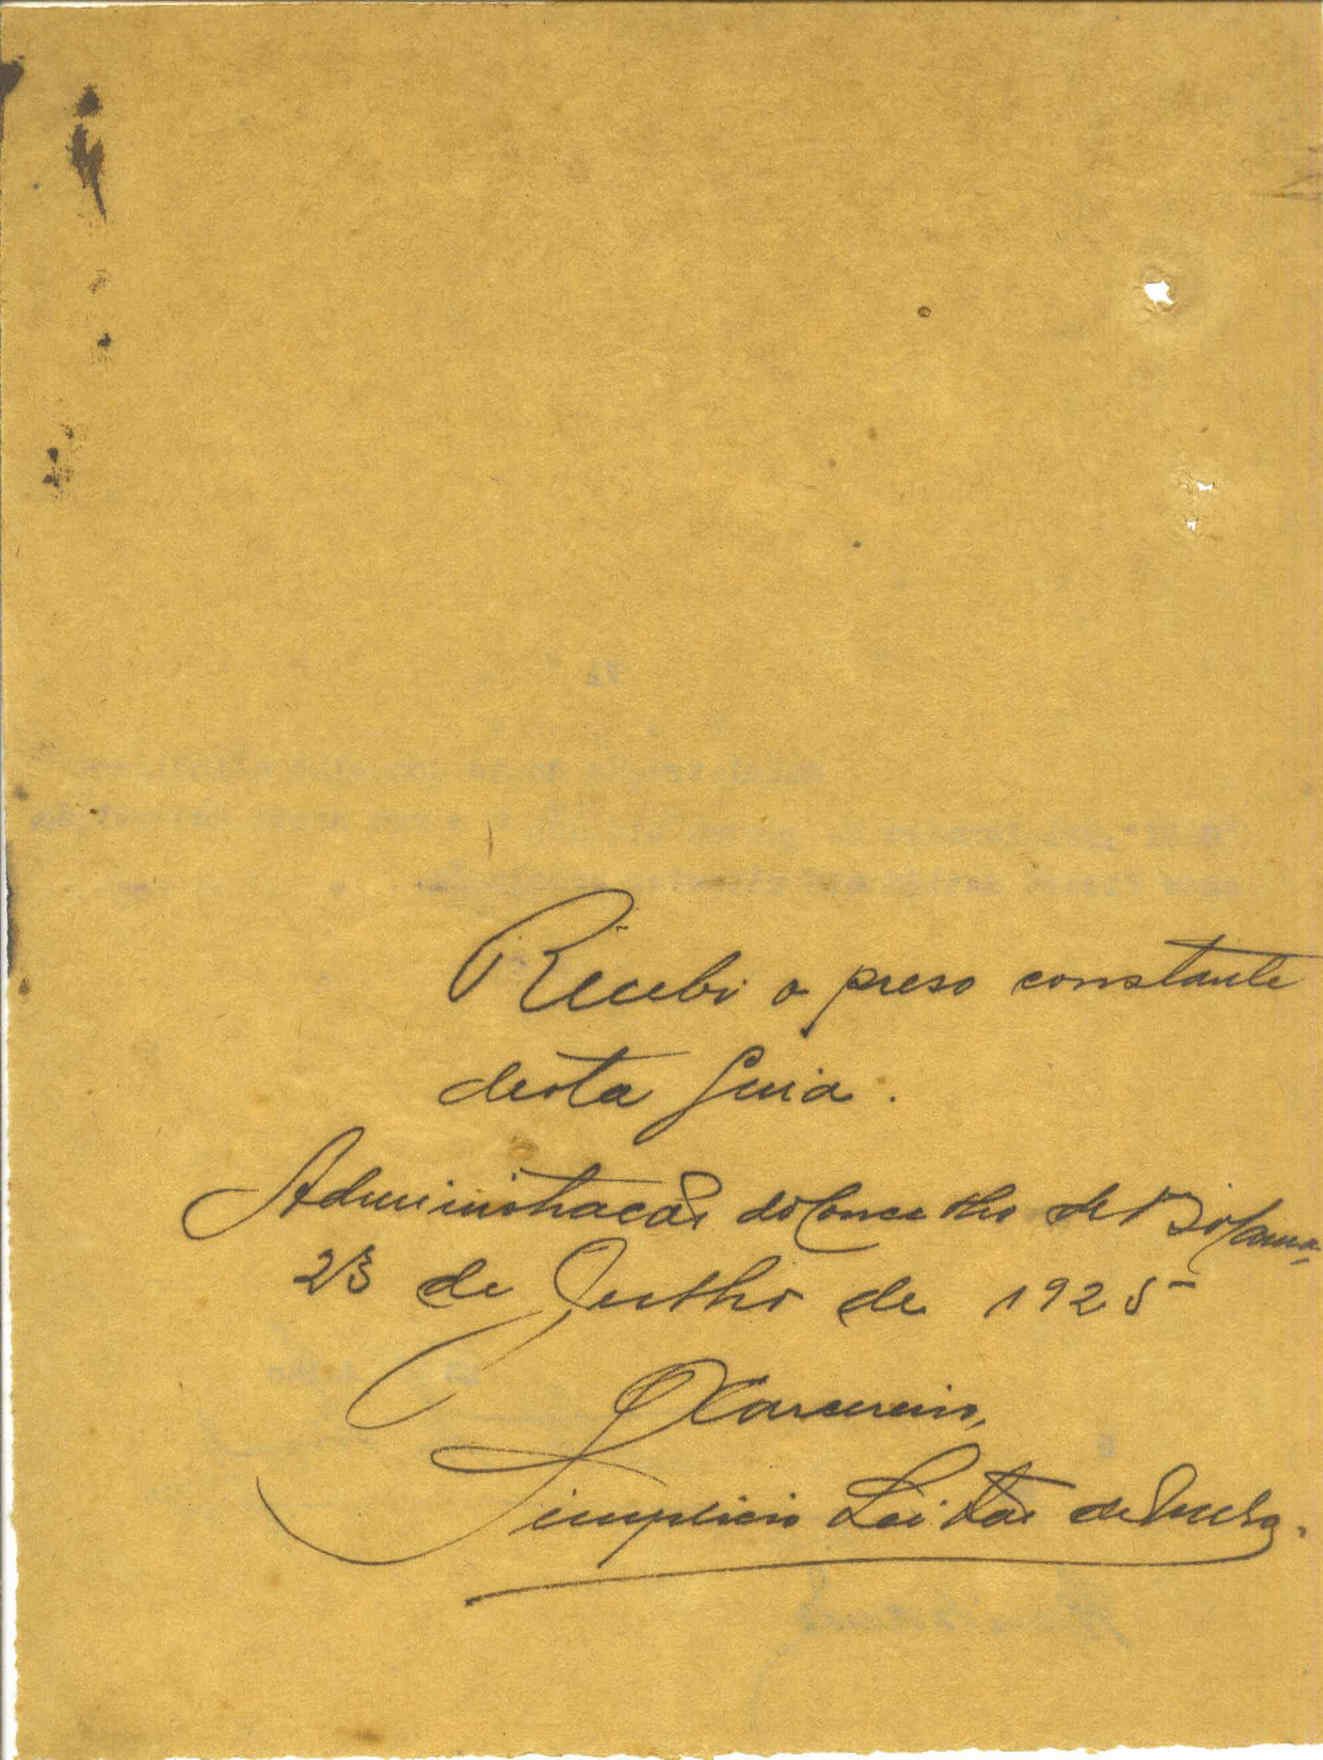 Recebi o preso constante
desta Guia.
Administração do Concelho de Bolama,
23 de Julho de 1925
O Carcereiro,
Simplicio Leitão de